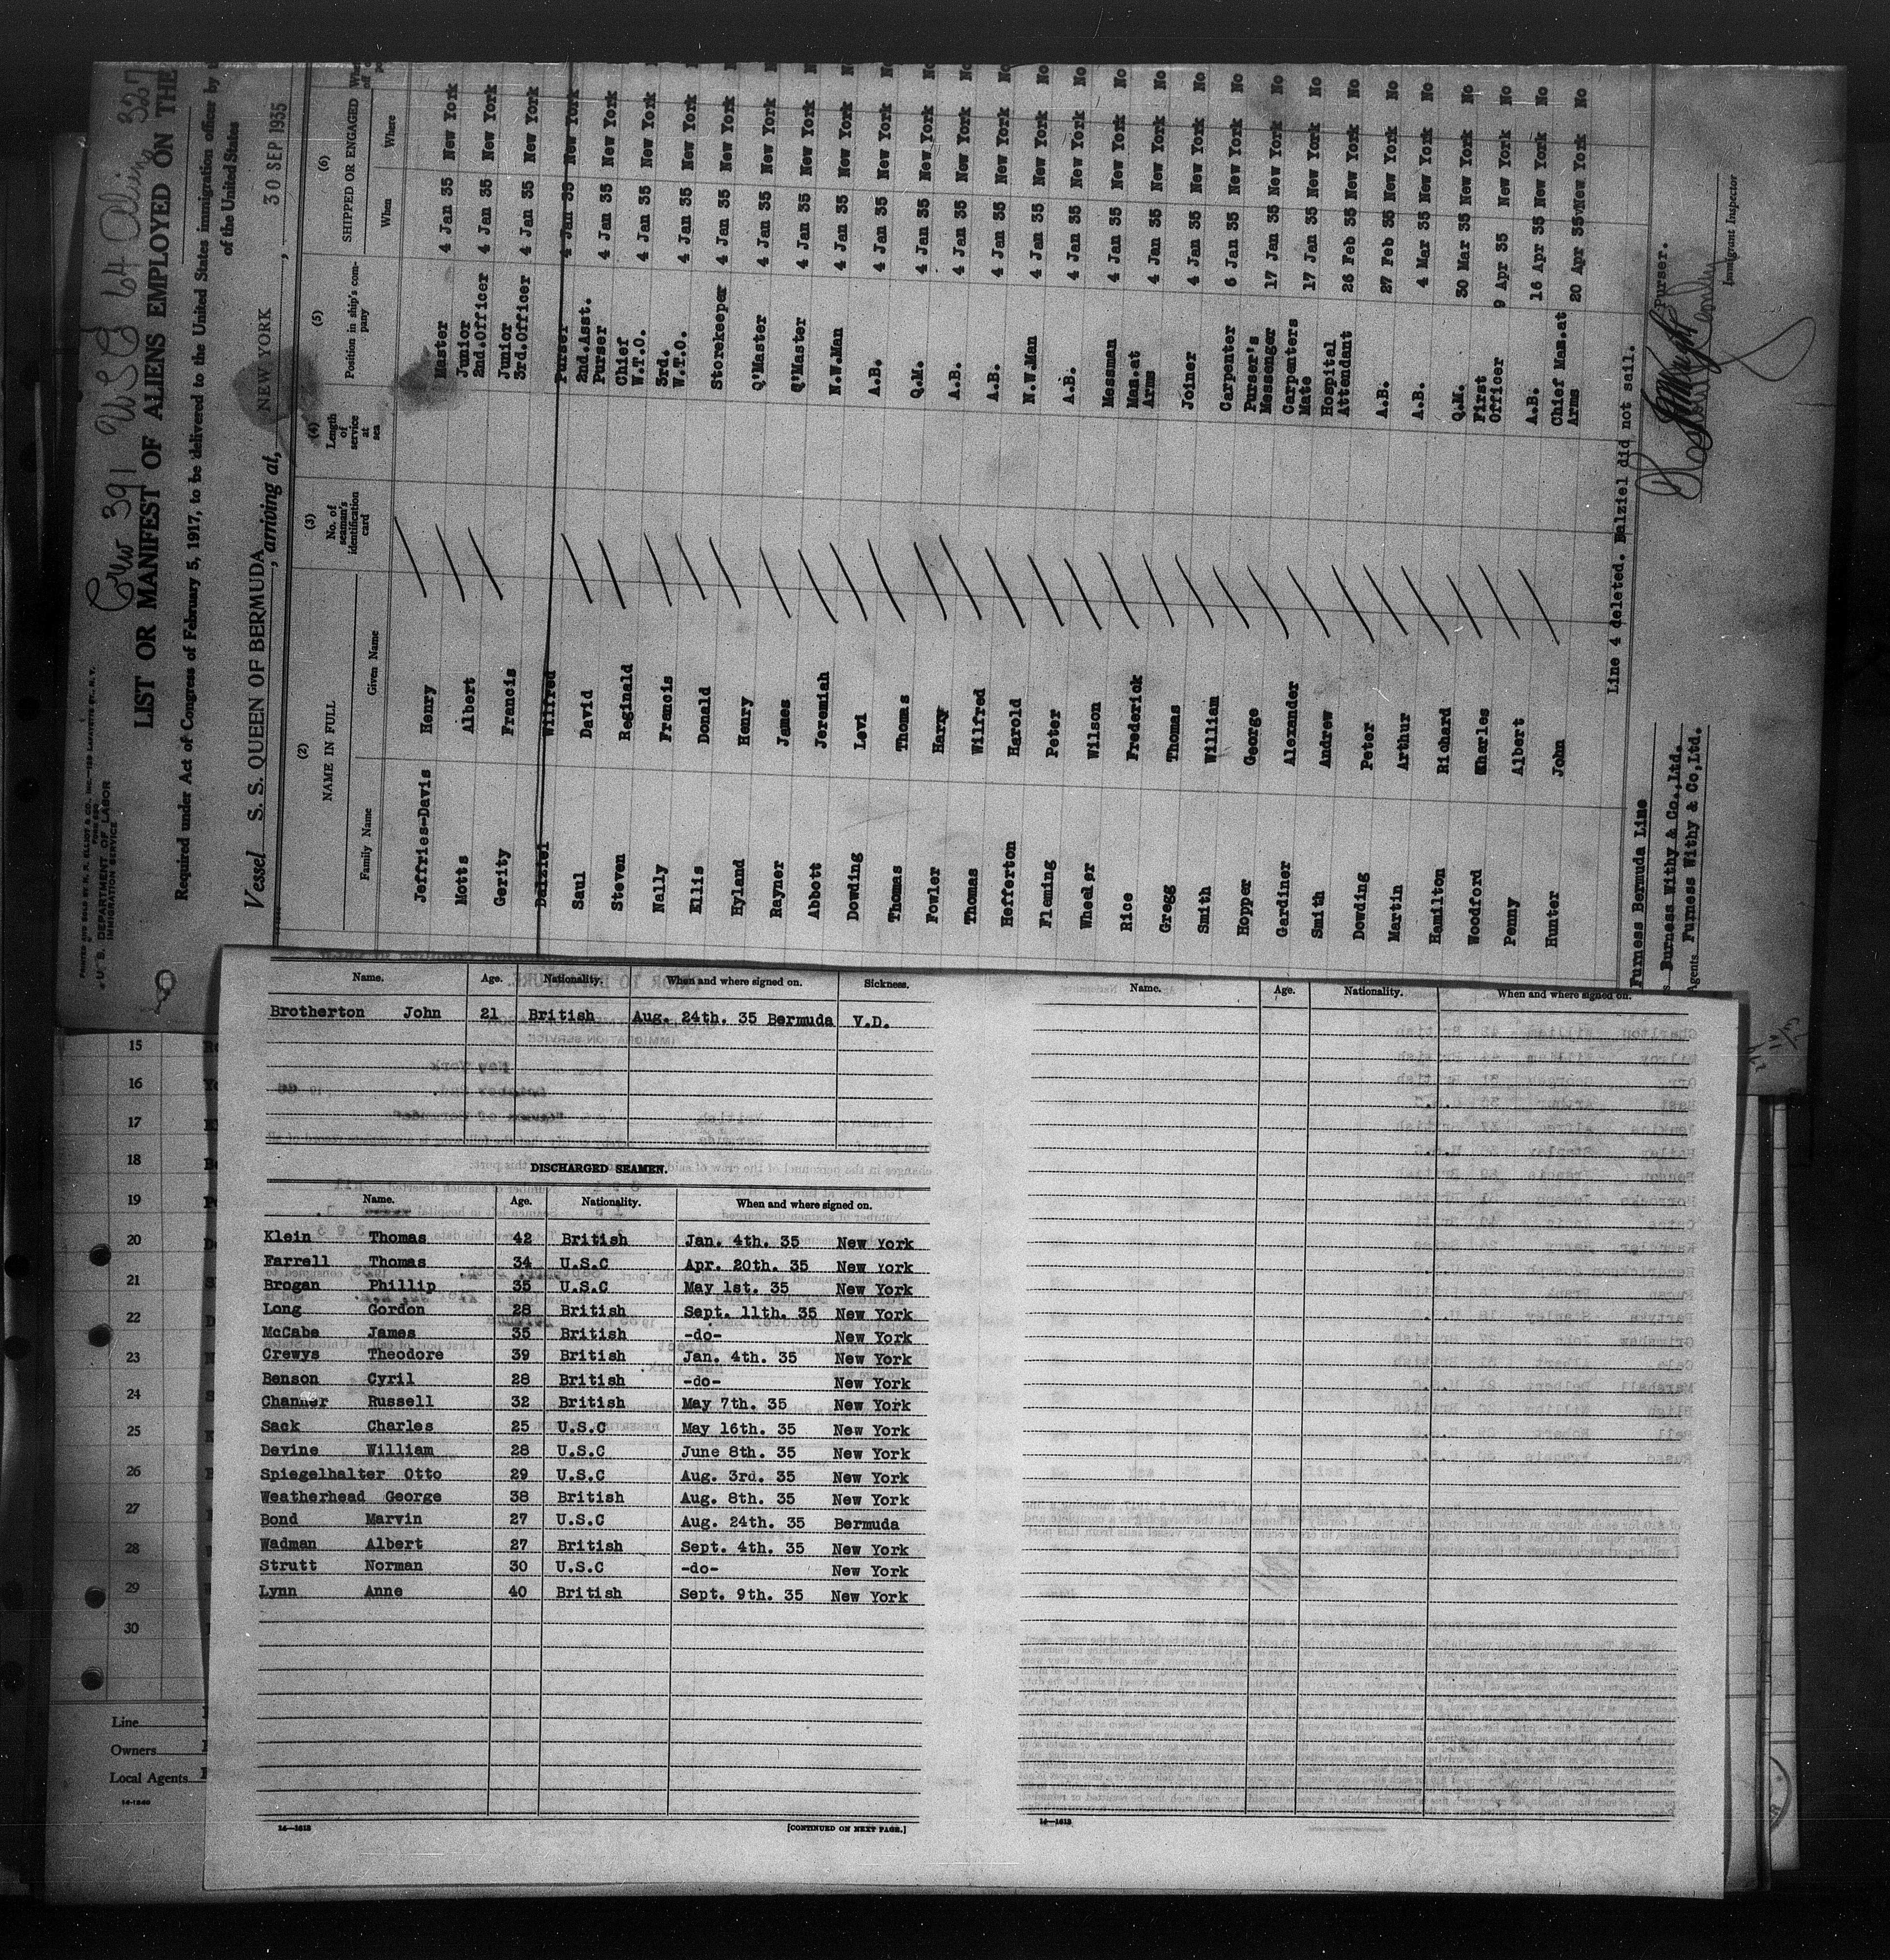 Crew 391 USC 64 Aliens 327
PRINTED AND SOLD BY
U. S. DEPARTMENT OF LABOR
IMMIGRATION SERVICE
LIST OR MANIFEST OF ALIENS EMPLOYED ON THE
Required under Act of Congress of February 5, 1917, to be delivered to the United States immigration officer by
of the United States
Vessel S. S. QUEEN OF BERMUDA, arriving at, NEW YORK, 30 SEP 1935
(2) (3) (4) (5) (6)
NAME IN FULL No. of seaman's identification card Length of service at sea Position in ship's company SHIPPED OR ENGAGED
Family Name Given Name When Where
Jeffries-Davis Henry Master 4 Jan 35 New York
Motts Albert Junior 2nd.Officer 4 Jan 35 New York
Gerity Francis Junior 3rd.Officer 4 Jan 35 New York
Dalziel Wilfred Purser 4 Jan 35 New York
Saul David 2nd.Asst. Purser 4 Jan 35 New York
Steven Reginald Chief W.T.O. 4 Jan 35 New York
Nally Francis 3rd. W.T.O. 4 Jan 35 New York
Ellis Donald Storekeeper 4 Jan 35 New York
Hyland Henry Q'Master 4 Jan 35 New York
Rayner James Q'Master 4 Jan 35 New York No
Abbott Jeremiah N.W.Man 4 Jan 35 New York No
Dowding Levi A.B. 4 Jan 35 New York No
Thomas Thomas Q.M. 4 Jan 35 New York No
Fowler Harry A.B. 4 Jan 35 New York No
Thomas Wilfred A.B. 4 Jan 35 New York No
Hefferton Harold N.W.Man 4 Jan 35 New York No
Fleming Peter A.B. 4 Jan 35 New York No
Wheeler Wilson Messman 4 Jan 35 New York No
Rice Frederick Mas.at Arms 4 Jan 35 New York No
Gregg Thomas Joiner 4 Jan 35 New York No
Smith William Carpenter 6 Jan 35 New York No
Hopper George Purser's Messenger 17 Jan 35 New York No
Gardiner Alexander Carpenters Mate 17 Jan 35 New York No
Smith Andrew Hospital Attendant 26 Feb 35 New York No
Dowding Peter A.B. 27 Feb 35 New York No
Martin Arthur A.B. 4 Mar 35 New York No
Hamilton Richard Q.M. 30 Mar 35 New York No
Woodford Kharles First Officer 9 Apr 35 New York No
Penny Albert A.B. 16 Apr 35 New York No
Hunter John Chief Mas.at Arms 20 Apr 35 New York No
Line 4 deleted. Dalziel did not sail.
Furness Bermuda Line Purser.
Burness Withy & Co.,Ltd.
Agents Furness Withy & Co,Ltd. Immigrant Inspector
Name. Age. Nationality. When and where signed on. Sickness.
Brotherton John 21 British Aug. 24th. 35 Bermuda V.D.
DISCHARGED SEAMEN.
Name. Age. Nationality. When and where signed on.
Klein Thomas 42 British Jan. 4th. 35 New York
Farrell Thomas 34 U.S.C Apr. 20th. 35 New York
Brogan Phillip 35 U.S.C May 1st. 35 New York
Long Gordon 28 British Sept. 11th. 35 New York
McCabe James 35 British -do- New York
Crewys Theodore 39 British Jan. 4th. 35 New York
Benson Cyril 28 British -do- New York
Channer Russell 32 British May 7th. 35 New York
Sack Charles 25 U.S.C May 16th. 35 New York
Devine William 28 U.S.C June 8th. 35 New York
Spiegelhalter Otto 29 U.S.C Aug. 3rd. 35 New York
Weatherhead George 38 British Aug. 8th. 35 New York
Bond Marvin 27 U.S.C Aug. 24th. 35 Bermuda
Wadman Albert 27 British Sept. 4th. 35 New York
Strutt Norman 30 U.S.C -do- New York
Lynn Anne 40 British Sept. 9th. 35 New York
14—1613
[CONTINUED ON NEXT PAGE.]
Name. Age. Nationality. When and where signed on.
14—1613
15
16
17
18
19
20
21
22
23
24
25
26
27
28
29
30
Line
Owners
Local Agents
14-1240